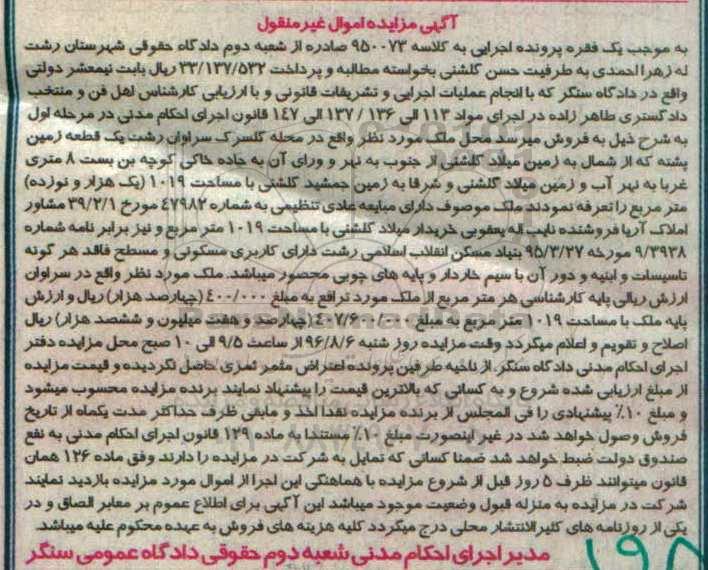 آگهی مزایده اموال غیرمنقول
به موجب یک فقره پرونده اجرایی به کلاسه ۹۵۰۰۷۳ صادره از شعبه دوم دادگاه حقوقی شهرستان رشت
له زهرا احمدی به طرفیت حسن گلشنی بخواسته مطالبه و پرداخت ۳۳/۱۳۷/۵۳۲ ریال بابت نیمعشر دولتی
واقع در دادگاه سنگر که با انجام عملیات اجرایی و تشریفات قانونی و با ارزیابی کارشناس اهل فن و منتخب
دادگستری طاهر زاده در اجرای مواد ۱۱۳ الی ۱۳۶ / ۱۳۷ الی ۱٤۷ قانون اجرای احکام مدنی در مرحله اول
به شرح ذیل به فروش میرسد محل ملک مورد نظر واقع در محله گلسرک سراوان رشت یک قطعه زمین
پشته که از شمال به زمین میلاد گلشنی از جنوب به نهر و ورای آن به جاده خاکی کوچه بن بست ۸ متری
غربا به نهر آب و زمین میلاد گلشنی و شرقا به زمین جمشید گلشنی با مساحت ۱۰۱۹ (یک هزار و نوزده)
متر مربع را تعرفه نمودند ملک موصوف دارای مبایعه عادی تنظیمی به شماره ٤۷۹۸۲ مورخ ۳۹/۲/۱ مشاور
املاک آریا فروشنده نایب اله یعقوبی خریدار میلاد گلشنی با مساحت ۱۰۱۹ متر مربع و نیز برابر نامه شماره
۹/۳۹۳۸ مورخه ۹۵/۳/۲۷ بنیاد مسکن انقلاب اسلامی رشت دارای کاربری مسکونی و مسطح فاقد هر گونه
تاسیسات و ابنیه و دور آن با سیم خاردار و پایه های چوبی محصور میباشد. ملک مورد نظر واقع در سراوان
ارزش ریالی پایه کارشناسی هر متر مربع از ملک مورد ترافع به مبلغ ٤۰۰/۰۰۰ (چهارصد هزار) ریال و ارزش
پایه ملک با مساحت ۱۰۱۹ متر مربع به مبلغ ٤۰۷/۶۰۰/۰۰۰ (چهارصد و هفت میلیون و ششصد هزار) ریال
اصلاح و تقویم و اعلام میگردد وقت مزایده روز شنبه ۹۶/۸/۶ از ساعت ۹/۵ الی ۱۰ صبح محل مزایده دفتر
اجرای احکام مدنی دادگاه سنگر. از ناحیه طرفین پرونده اعتراض مثمر ثمری حاصل نگردیده و قیمت مزایده
از مبلغ ارزیابی شده شروع و به کسانی که بالاترین قیمت را پیشنهاد نمایند برنده مزایده محسوب میشود
و مبلغ ۱۰٪ پیشنهادی را فی المجلس از برنده مزایده نقدا اخذ و مابقی ظرف حداکثر مدت یکماه از تاریخ
فروش وصول خواهد شد در غیر اینصورت مبلغ ۱۰٪ مستندا به ماده ۱۲۹ قانون اجرای احکام مدنی به نفع
صندوق دولت ضبط خواهد شد ضمنا کسانی که تمایل به شرکت در مزایده را دارند وفق ماده ۱۲۶ همان
قانون میتوانند ظرف ۵ روز قبل از شروع مزایده با هماهنگی این اجرا از اموال مورد مزایده بازدید نمایند
شرکت در مزایده به منزله قبول وضعیت موجود میباشد این آگهی برای اطلاع عموم بر معابر الصاق و در
یکی از روزنامه های کثیرالانتشار محلی درج میگردد کلیه هزینه های فروش به عهده محکوم علیه میباشد.
مدیر اجرای احکام مدنی شعبه دوم حقوقی دادگاه عمومی سنگر